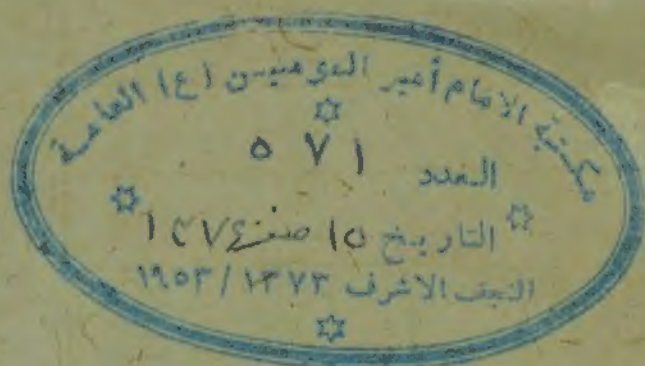 مكتبة الامام أمير المؤمنين (ع) العامة
العدد ٥٧١
التاريخ ١٥ صفر ١٣٧٤
النجف الاشرف ١٣٧٣ / ١٩٥٣